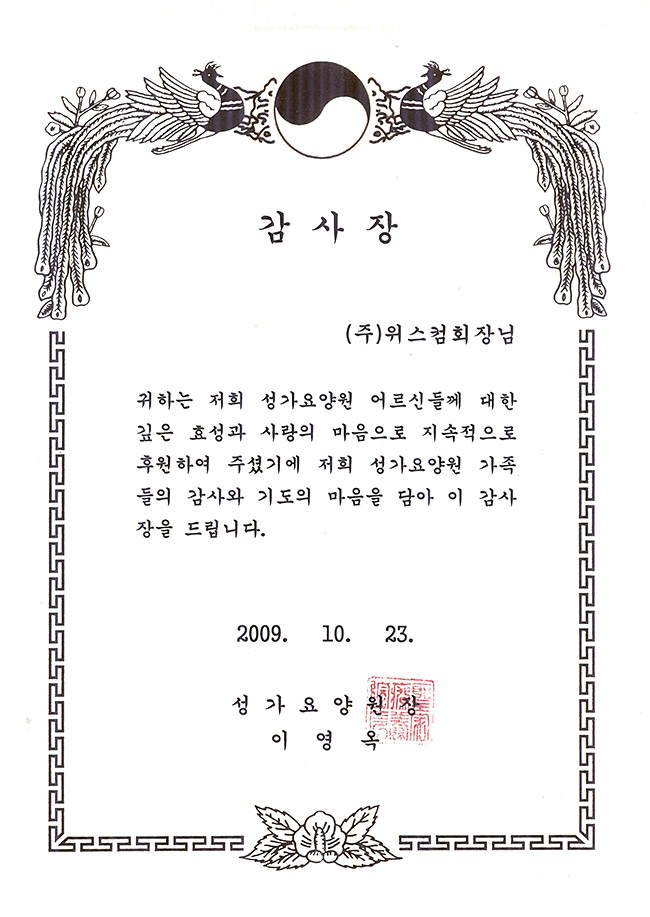 감 사 장
(주)위스컴회장님
귀하는 저희 성가요양원 어르신들께 대한
깊은 효성과 사랑의 마음으로 지속적으로
후원하여 주셨기에 저희 성가요양원 가족
들의 감사와 기도의 마음을 담아 이 감사
장을 드립니다.
2009. 10. 23.
성 가 요 양 원 장
이 영 옥